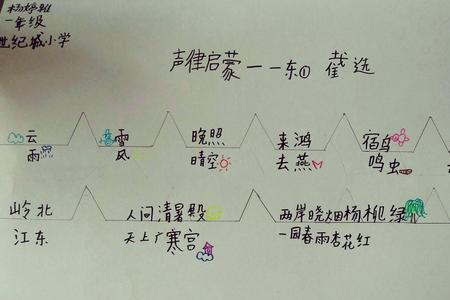 一年级
世纪城小学
声律启蒙——东① 截选
云 雪 晚照 来鸿 宿鸟
雨 风 晴空 去燕 鸣虫
岭北 人间清暑殿 两岸晓烟杨柳绿
江东 天上广寒宫 一园春雨杏花红